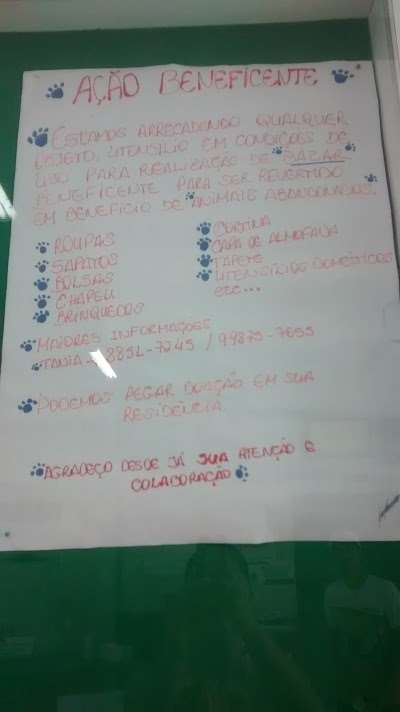 AÇÃO BENEFICENTE
ESTAMOS ARRECADENDO QUALQUER
OBJETO, UTENSÍLIO EM CONDIÇÕES DE
USO PARA REALIZAÇÃO DE BAZAR
BENEFICENTE PARA SER REVERTIDO
EM BENEFÍCIO DE ANIMAIS ABANDONADOS.
ROUPAS
SAPATOS
BOLSAS
CHAPÉU
BRINQUEDOS
CORTINA
CAPA DE ALMOFADA
TAPETE
UTENSÍLIOS DOMÉSTICOS
ETC...
MAIORES INFORMAÇÕES
TANIA - 8851-7245 / 99875-7655
PODEMOS PEGAR DOAÇÃO EM SUA
RESIDÊNCIA
AGRADEÇO DESDE JÁ SUA ATENÇÃO E
COLABORAÇÃO